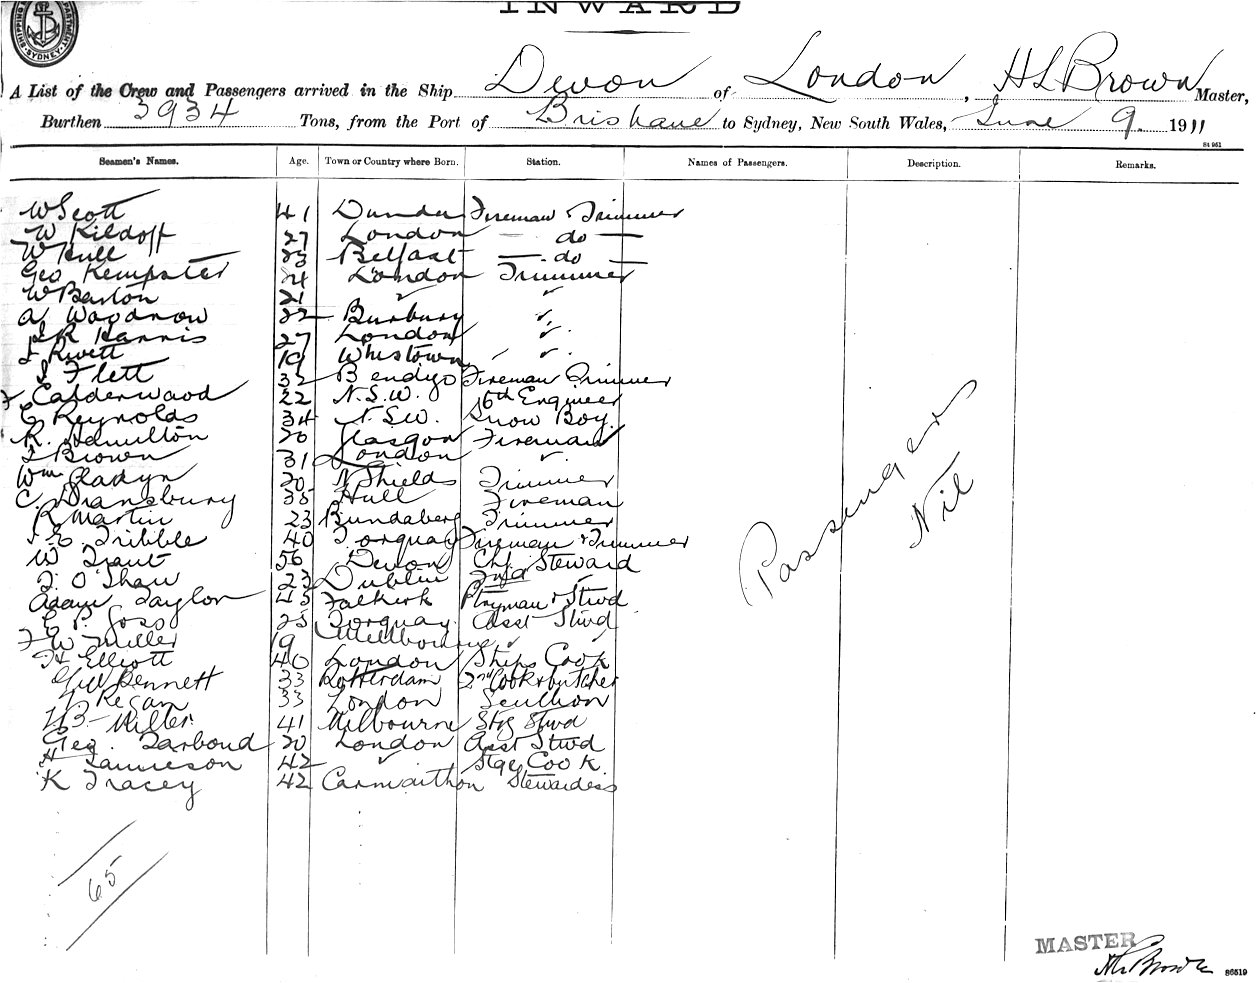 INWARD
SYDNEY
A List of the Crew and Passengers arrived in the Ship Devon of London, H L Brown Master,
Burthen 3934 Tons, from the Port of Brisbane to Sydney, New South Wales, June 9 1911
84 951
Seamen's Names. Age. Town or Country where Born. Station. Names of Passengers. Description. Remarks.
W Scott 41 Dundee Fireman & Trimmer
W Kildoff 27 London — do —
W Hull 23 Belfast — do —
Geo Kempster 24 London Trimmer
W Barton 21 ✓ ✓
A Woodnow 22 Bunbury ✓
R Harris 27 London ✓
Rivett 19 Whistown ✓ ✓
J Flett 32 Bendigo Fireman Trimmer
F Calderwood 22 N.S.W. 6th Engineer
E Reynolds 34 N.S.W. Snow Boy
R. Hamilton 20 Glasgow Fireman
J Brown 31 London ✓
Wm Gladyn 20 N Shields Trimmer
C. Dransbury 35 Hull Fireman
R Martin 23 Bundaberg Trimmer
Tribble 40 Torquay Fireman & Trimmer
W Trant 56 Devon Chf Steward
J. O'Shaw 23 Dublin 2nd ✓
Adam Taylor 43 Falkirk Ptryman & Stwd
E P. Goss 25 Torquay Asst Stwd
F W Miller 19 Melbourne ✓ ✓
H Elliott 40 London Ships Cook
G W Bennett 33 Rotterdam 2nd Cook & butcher
Regan 33 London Scullion
H B- Miller 41 Melbourne Stg Stwd
Geo. Tarbond 20 London Asst Stwd
H Jamieson 42 ✓ Stge Cook
K Tracey 42 Carmaithon Stewardess
Passengers
Nil
65
MASTER
H L Brown
86519